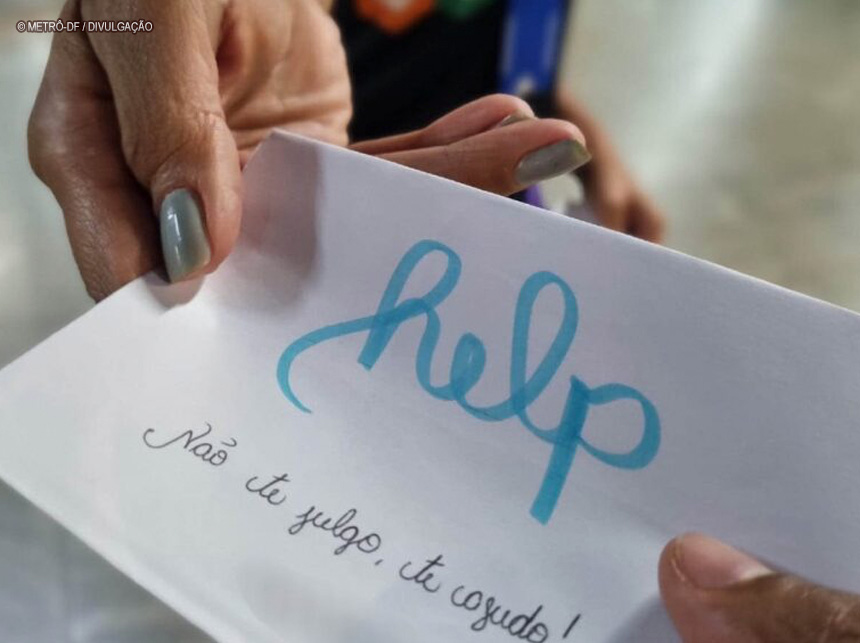 © METRÔ-DF / DIVULGAÇÃO
help
Não te julgo, te ajudo!